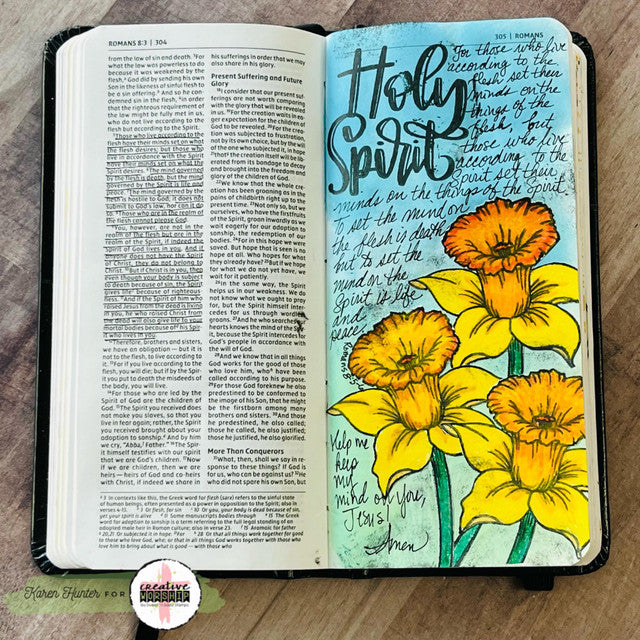 ROMANS 8:3 | 304
from the law of sin and death. 3For
what the law was powerless to do
because it was weakened by the
flesh, God did by sending his own
Son in the likeness of sinful flesh to
be a sin offering. And so he con-
demned sin in the flesh, 4in order
that the righteous requirement of
the law might be fully met in us,
who do not live according to the
flesh but according to the Spirit.
5Those who live according to the
flesh have their minds set on what
the flesh desires; but those who
live in accordance with the Spirit
have their minds set on what the
Spirit desires. 6The mind governed
by the flesh is death, but the mind
governed by the Spirit is life and
peace. 7The mind governed by the
flesh is hostile to God; it does not
submit to God's law, nor can it do
so. 8Those who are in the realm of
the flesh cannot please God.
9You, however, are not in the
realm of the flesh but are in the
realm of the Spirit, if indeed the
Spirit of God lives in you. And if
anyone does not have the Spirit
of Christ, they do not belong to
Christ. 10But if Christ is in you, then
even though your body is subject
to death because of sin, the Spirit
gives life because of righteous-
ness. 11And if the Spirit of him who
raised Jesus from the dead is living
in you, he who raised Christ from
the dead will also give life to your
mortal bodies because of his Spir-
it who lives in you.
12Therefore, brothers and sisters,
we have an obligation — but it is
not to the flesh, to live according
to it. 13For if you live according to
the flesh, you will die; but if by the Spir-
it you put to death the misdeeds of
the body, you will live.
14For those who are led by the
Spirit of God are the children of
God. 15The Spirit you received does
not make you slaves, so that you
live in fear again; rather, the Spirit
you received brought about your
adoption to sonship. And by him
we cry, "Abba, Father." 16The Spir-
it himself testifies with our spirit
that we are God's children. 17Now
if we are children, then we are
heirs — heirs of God and co-heirs
with Christ, if indeed we share in
his sufferings in order that we may
also share in his glory.
Present Suffering and Future
Glory
18I consider that our present suf-
ferings are not worth comparing
with the glory that will be revealed
in us. 19For the creation waits in ea-
ger expectation for the children of
God to be revealed. 20For the crea-
tion was subjected to frustration,
not by its own choice, but by the will
of the one who subjected it, in hope
21that the creation itself will be lib-
erated from its bondage to decay
and brought into the freedom and
glory of the children of God.
22We know that the whole crea-
tion has been groaning as in the
pains of childbirth right up to the
present time. 23Not only so, but we
ourselves, who have the firstfruits
of the Spirit, groan inwardly as we
wait eagerly for our adoption to
sonship, the redemption of our
bodies. 24For in this hope we were
saved. But hope that is seen is no
hope at all. Who hopes for what
they already have? 25But if we hope
for what we do not yet have, we
wait for it patiently.
26In the same way, the Spirit
helps us in our weakness. We do
not know what we ought to pray
for, but the Spirit himself inter-
cedes for us through wordless
groans. 27And he who searches our
hearts knows the mind of the Spir-
it, because the Spirit intercedes for
God's people in accordance with
the will of God.
28And we know that in all things
God works for the good of those
who love him, who have been
called according to his purpose.
29For those God foreknew he also
predestined to be conformed to
the image of his Son, that he might
be the firstborn among many
brothers and sisters. 30And those
he predestined, he also called;
those he called, he also justified;
those he justified, he also glorified.
More Than Conquerors
31What, then, shall we say in re-
sponse to these things? If God is
for us, who can be against us? 32He
who did not spare his own Son, but
3 In contexts like this, the Greek word for flesh (sarx) refers to the sinful state
of human beings, often presented as a power in opposition to the Spirit; also in
verses 4-13. 3 Or flesh, for sin 10 Or you, your body is dead because of sin,
yet your spirit is alive 11 Some manuscripts bodies through 15 The Greek
word for adoption to sonship is a term referring to the full legal standing of an
adopted male heir in Roman culture; also in verse 23. 15 Aramaic for father
20,21 Or subjected it in hope. 21For 28 Or that all things work together for good
to those who love God, who; or that in all things God works together with those who
love him to bring about what is good — with those who
305 | ROMANS
Holy
Spirit
For those who live
according to the
flesh set their
minds on the
things of the
flesh, but
those who live
according to the
Spirit set their
minds on the things of the Spirit.
To set the mind on
the flesh is death,
but to set the
mind on the
Spirit is life
and
peace.
Help me
keep
my
mind on You,
Jesus!
Amen
Karen Hunter FOR
creative
WORSHIP